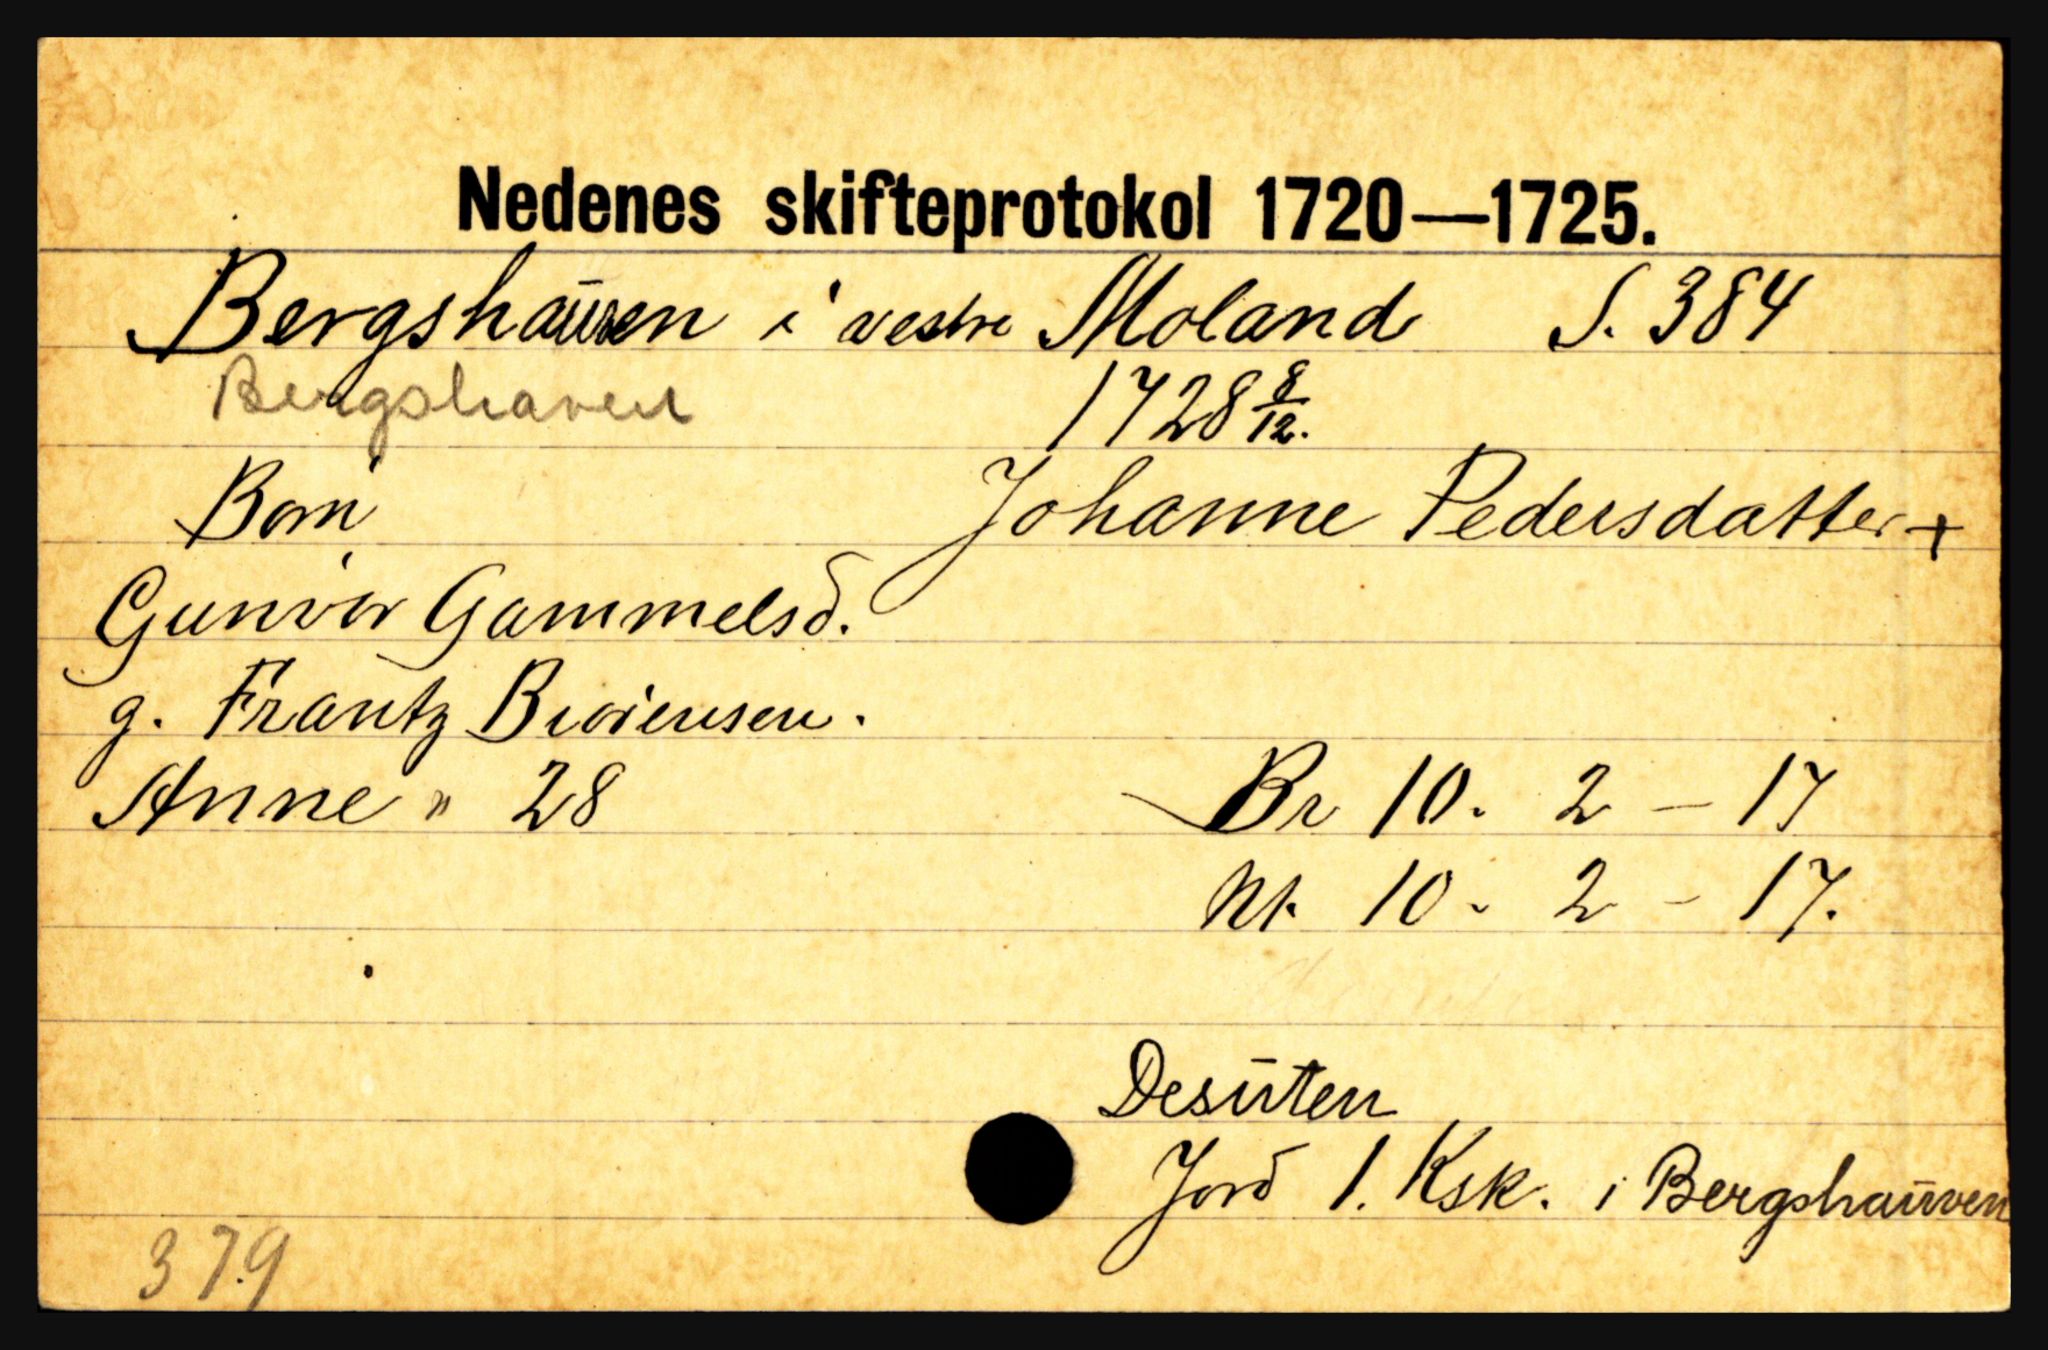 Nedenes skifteprotokol 1720—1725.
Bergshauven i vestre Moland S. 384
Bergshaven 1728 8/12.
Børn Johanne Pedersdatter +
Gunvor Gammelsd.
g. Frantz Biøiensen.
Anne " 28 Br 10. 2 - 17
Nt. 10. 2 - 17.
Desuten
Jord 1. Ksk. i Bergshauven
379